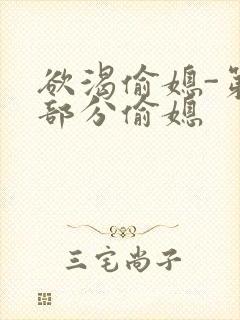 欲渴偷媳-第
部分偷媳
三宅尚子